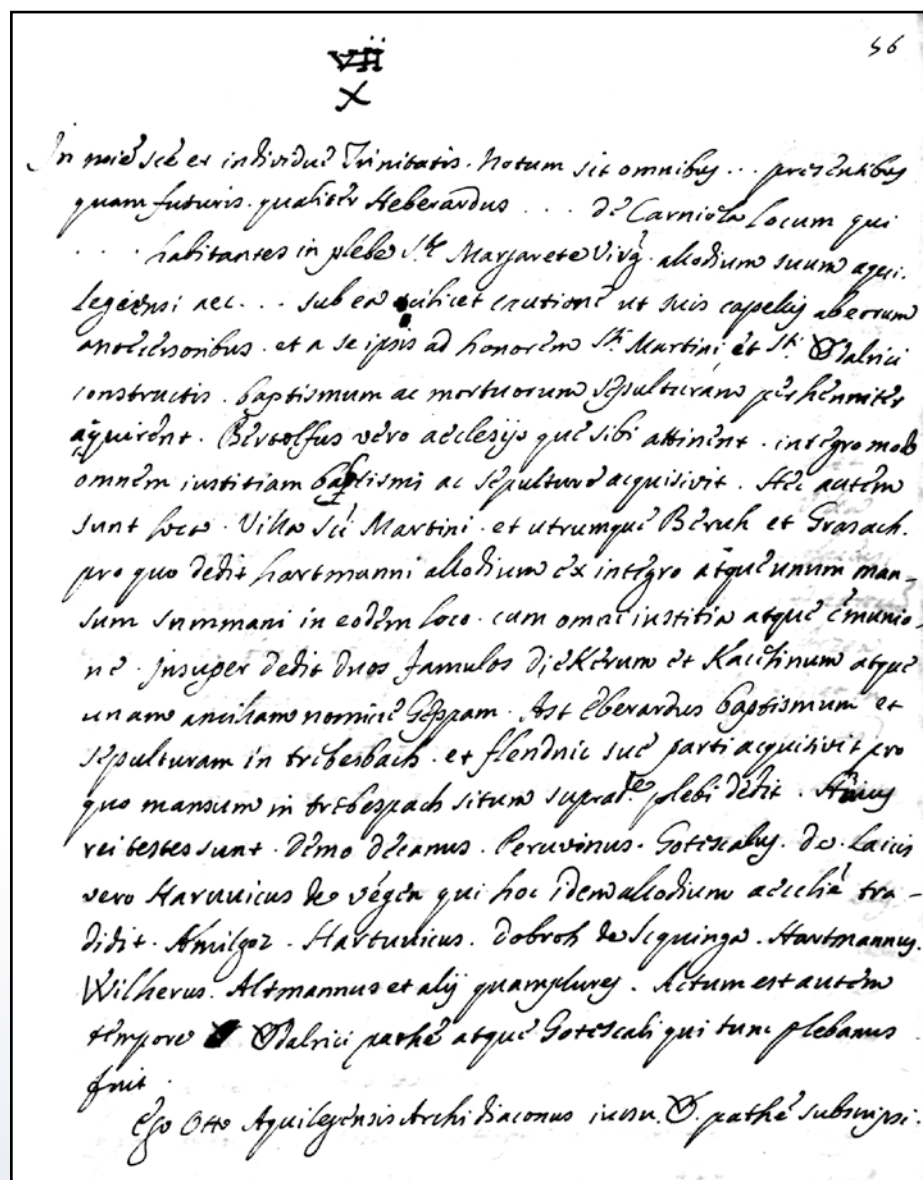 56
VII
X
In noiē scē et individuē Trinitatis. Notum sit omnibus .. presentibus
quam futuris. qualiter Heberardus .... de Carniola Locum qui
.... habitantes in plebe Stē Margarete Virg. allodium suum aqui-
legensi aec... sub ea scilicet cautione ut suis capellis ab eorum
antecessoribus. et a se ipsis ad honorem Sti Martini et Sti Odalrici
constructis. baptismum ac mortuorum sepulturam perhenniter
aquirent. Bertolfus vero aeclesijs que sibi attinent. integro mod
omnem iustitiam baptismi ac sepulture acquisivit. Hec autem
sunt loca. Villa sci Martini. et utrumque Beruh et Grasach.
pro quo dedit hartmanni allodium ex integro atque unum man-
sum summani in eodem loco. cum omni iustitia atque emunio-
ne. Insuper dedit duos famulos Diekerum et Kacelinum atque
unam ancillam nomine Geppam. Ast Eberardus baptismum et
sepulturam in trebesbach. et flendnic sue parti acquisivit pro
quo mansum in trebespach situm suprad.te plebi dedit. Huius
rei testes sunt. Demo decanus. Peruvinus. Gotescalus. de Laicis
vero Haruuicus de vegen qui hoc idem allodium aecclie tra-
didit. Amilgoz. Hartuuicus. Dobroh de Sequinga. Hartmannus.
Wilherus. Altmannus et alij quamplures. Actum est autem
tempore Odalrici pathē atque Gotescali qui tunc plebanus
fuit.
Ego Otto Aquilegensis Archidiaconus iussu. O. pathē subscripsi.